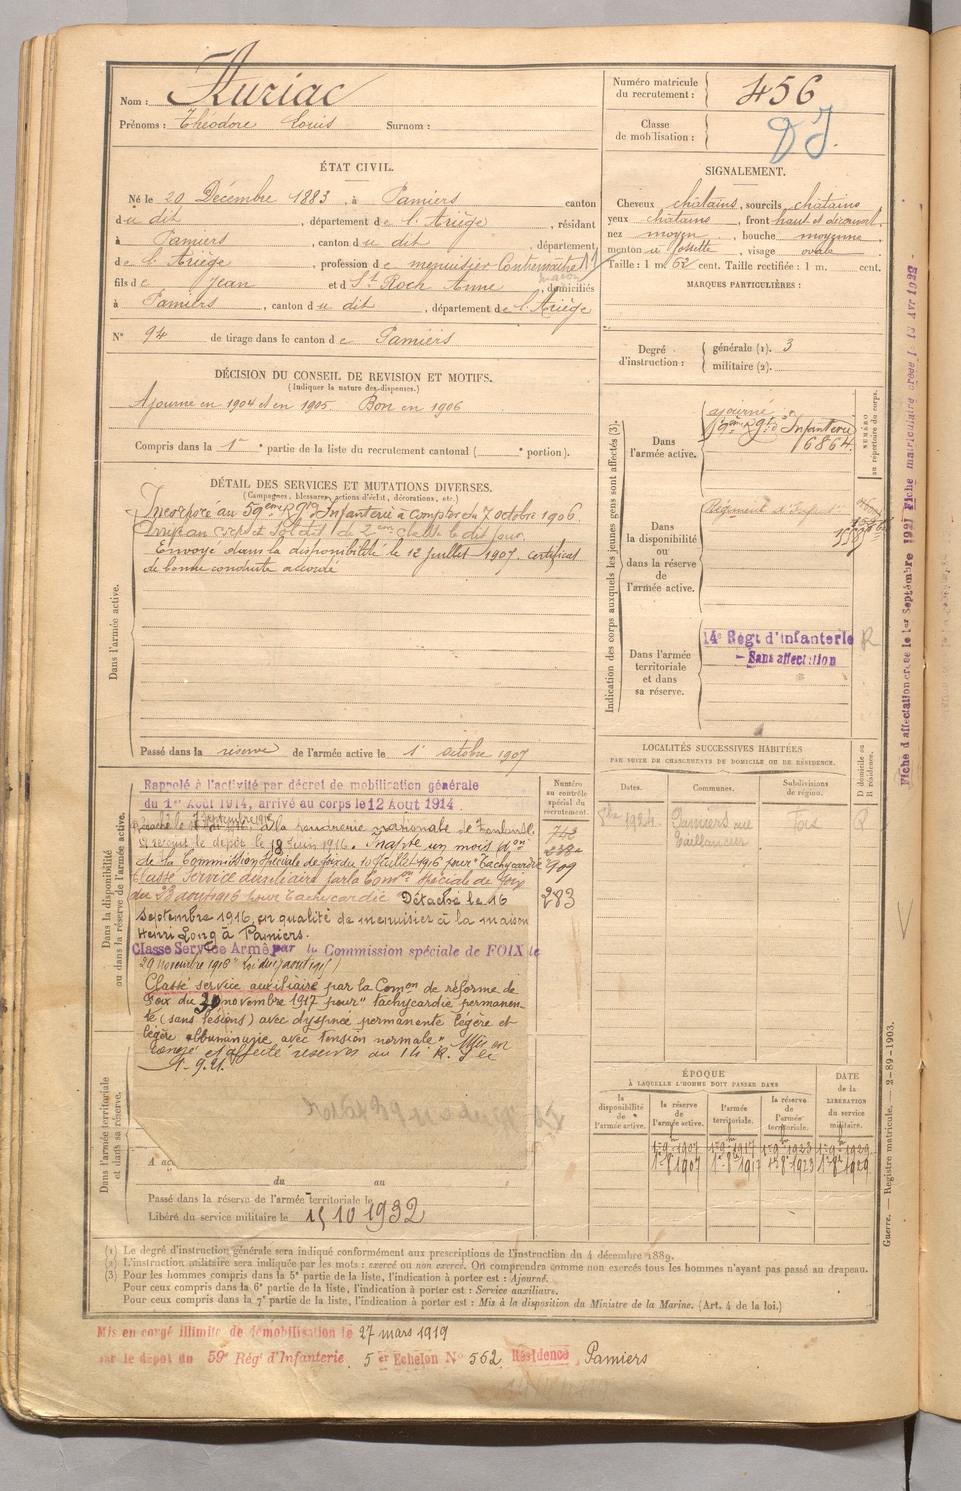 Nom : Auriac
Prénoms : Théodore Louis Surnom :
Numéro matricule du recrutement : 456
Classe de mobilisation :
ÉTAT CIVIL.
Né le 20 Décembre 1883, à Pamiers canton
du dit, département de l'Ariège, résidant
à Pamiers, canton du dit, département
de l'Ariège, profession de menuisier Contremaître
fils de Jean et de St Roch Anne, domiciliés
à Pamiers, canton du dit, département de l'Ariège
N° 94 de tirage dans le canton de Pamiers
SIGNALEMENT.
Cheveux châtains, sourcils châtains
yeux châtains, front haut et découvert,
nez moyen, bouche moyenne
menton à fossette, visage ovale
Taille : 1 m. 62 cent. Taille rectifiée : 1 m. cent.
MARQUES PARTICULIÈRES :
Degré d'instruction : générale (1). 3
militaire (2).
DÉCISION DU CONSEIL DE REVISION ET MOTIFS.
(Indiquer la nature des dispenses.)
Ajourné en 1904 et en 1905. Bon en 1906
Compris dans la 1re partie de la liste du recrutement cantonal ( e portion).
DÉTAIL DES SERVICES ET MUTATIONS DIVERSES.
(Campagnes, blessures, actions d'éclat, décorations, etc.)
Dans l'armée active.
Incorporé au 59eme Rgt d'Infanterie à compter du 7 octobre 1906.
Arrivé au corps et soldat de 2eme classe le dit jour.
Envoyé dans la disponibilité le 12 juillet 1907. certificat
de bonne conduite accordé
Passé dans la réserve de l'armée active le 1er octobre 1907
Indication des corps auxquels les jeunes gens sont affectés (3).
NUMÉRO au répertoire du corps.
Dans l'armée active.
ajourné
59eme Rgt d'Infanterie
6864
Dans la disponibilité ou dans la réserve de l'armée active.
Régiment d'Infanterie
Dans l'armée territoriale et dans sa réserve.
14e Régt d'infanterie R
Sans affectation
LOCALITÉS SUCCESSIVES HABITÉES
PAR SUITE DE CHANGEMENTS DE DOMICILE OU DE RÉSIDENCE.
Dates. Communes. Subdivisions de région. D domicile ou R résidence.
1924 Pamiers rue Foix R
Taillancier
Dans la disponibilité ou dans la réserve de l'armée active.
Numéro au contrôle spécial du recrutement.
Rappelé à l'activité par décret de mobilisation générale
du 1er Août 1914, arrivé au corps le 12 Août 1914
Détaché le 7 Septembre 1915 à la poudrerie nationale de
rejoint le dépôt le 18 Juin 1916. Inapte un mois don
de la Commission Spéciale de foix du 10 Juillet 1916 pour "Tachycardie 909
Classé Service auxiliaire par la Comon Spéciale de Foix
du 23 août 1916 pour tachycardie Détaché le 16 283
Septembre 1916, en qualité de menuisier à la maison
Henri Long à Pamiers.
Classé Service Armé par la Commission spéciale de FOIX le
29 novembre 1916
Classé service auxiliaire par la Comon de réforme de
Foix du 30 novembre 1917 pour "tachycardie permanen-
te (sans lésions) avec dyspnée permanente légère et
légère albuminurie avec tension normale" Mis en
congé et affecté réserves du 14 R. I le
1-9.21.
Dans l'armée territoriale et dans sa réserve.
A
du au
Passé dans la réserve de l'armée territoriale le
Libéré du service militaire le 15 10 1932
ÉPOQUE
À LAQUELLE L'HOMME DOIT PASSER DANS
DATE de la LIBÉRATION du service militaire.
la disponibilité de l'armée active. la réserve de l'armée active. l'armée territoriale. la réserve de l'armée territoriale.
1er 9 1907 1er 9 1917 1er 9 1923 1er 9 1929
1er 8 1907 1er 8 1917 1er 8 1923 1er 8 1929
(1) Le degré d'instruction générale sera indiqué conformément aux prescriptions de l'instruction du 4 décembre 1889.
(2) L'instruction militaire sera indiquée par les mots : exercé ou non exercé. On comprendra comme non exercés tous les hommes n'ayant pas passé au drapeau.
(3) Pour les hommes compris dans la 5e partie de la liste, l'indication à porter est : Ajourné.
Pour ceux compris dans la 6e partie de la liste, l'indication à porter est : Service auxiliaire.
Pour ceux compris dans la 7e partie de la liste, l'indication à porter est : Mis à la disposition du Ministre de la Marine. (Art. 4 de la loi.)
Mis en congé illimité de démobilisation le 27 mars 1919
par le dépôt du 59e Rég' d'Infanterie 5er Echelon N° 562 Résidence Pamiers
Fiche d'affectation créée le 1er Septembre 1921 Fiche matriculaire créée le 13 Avr 1922
Guerre. — Registre matricule. — 2-89-1903.